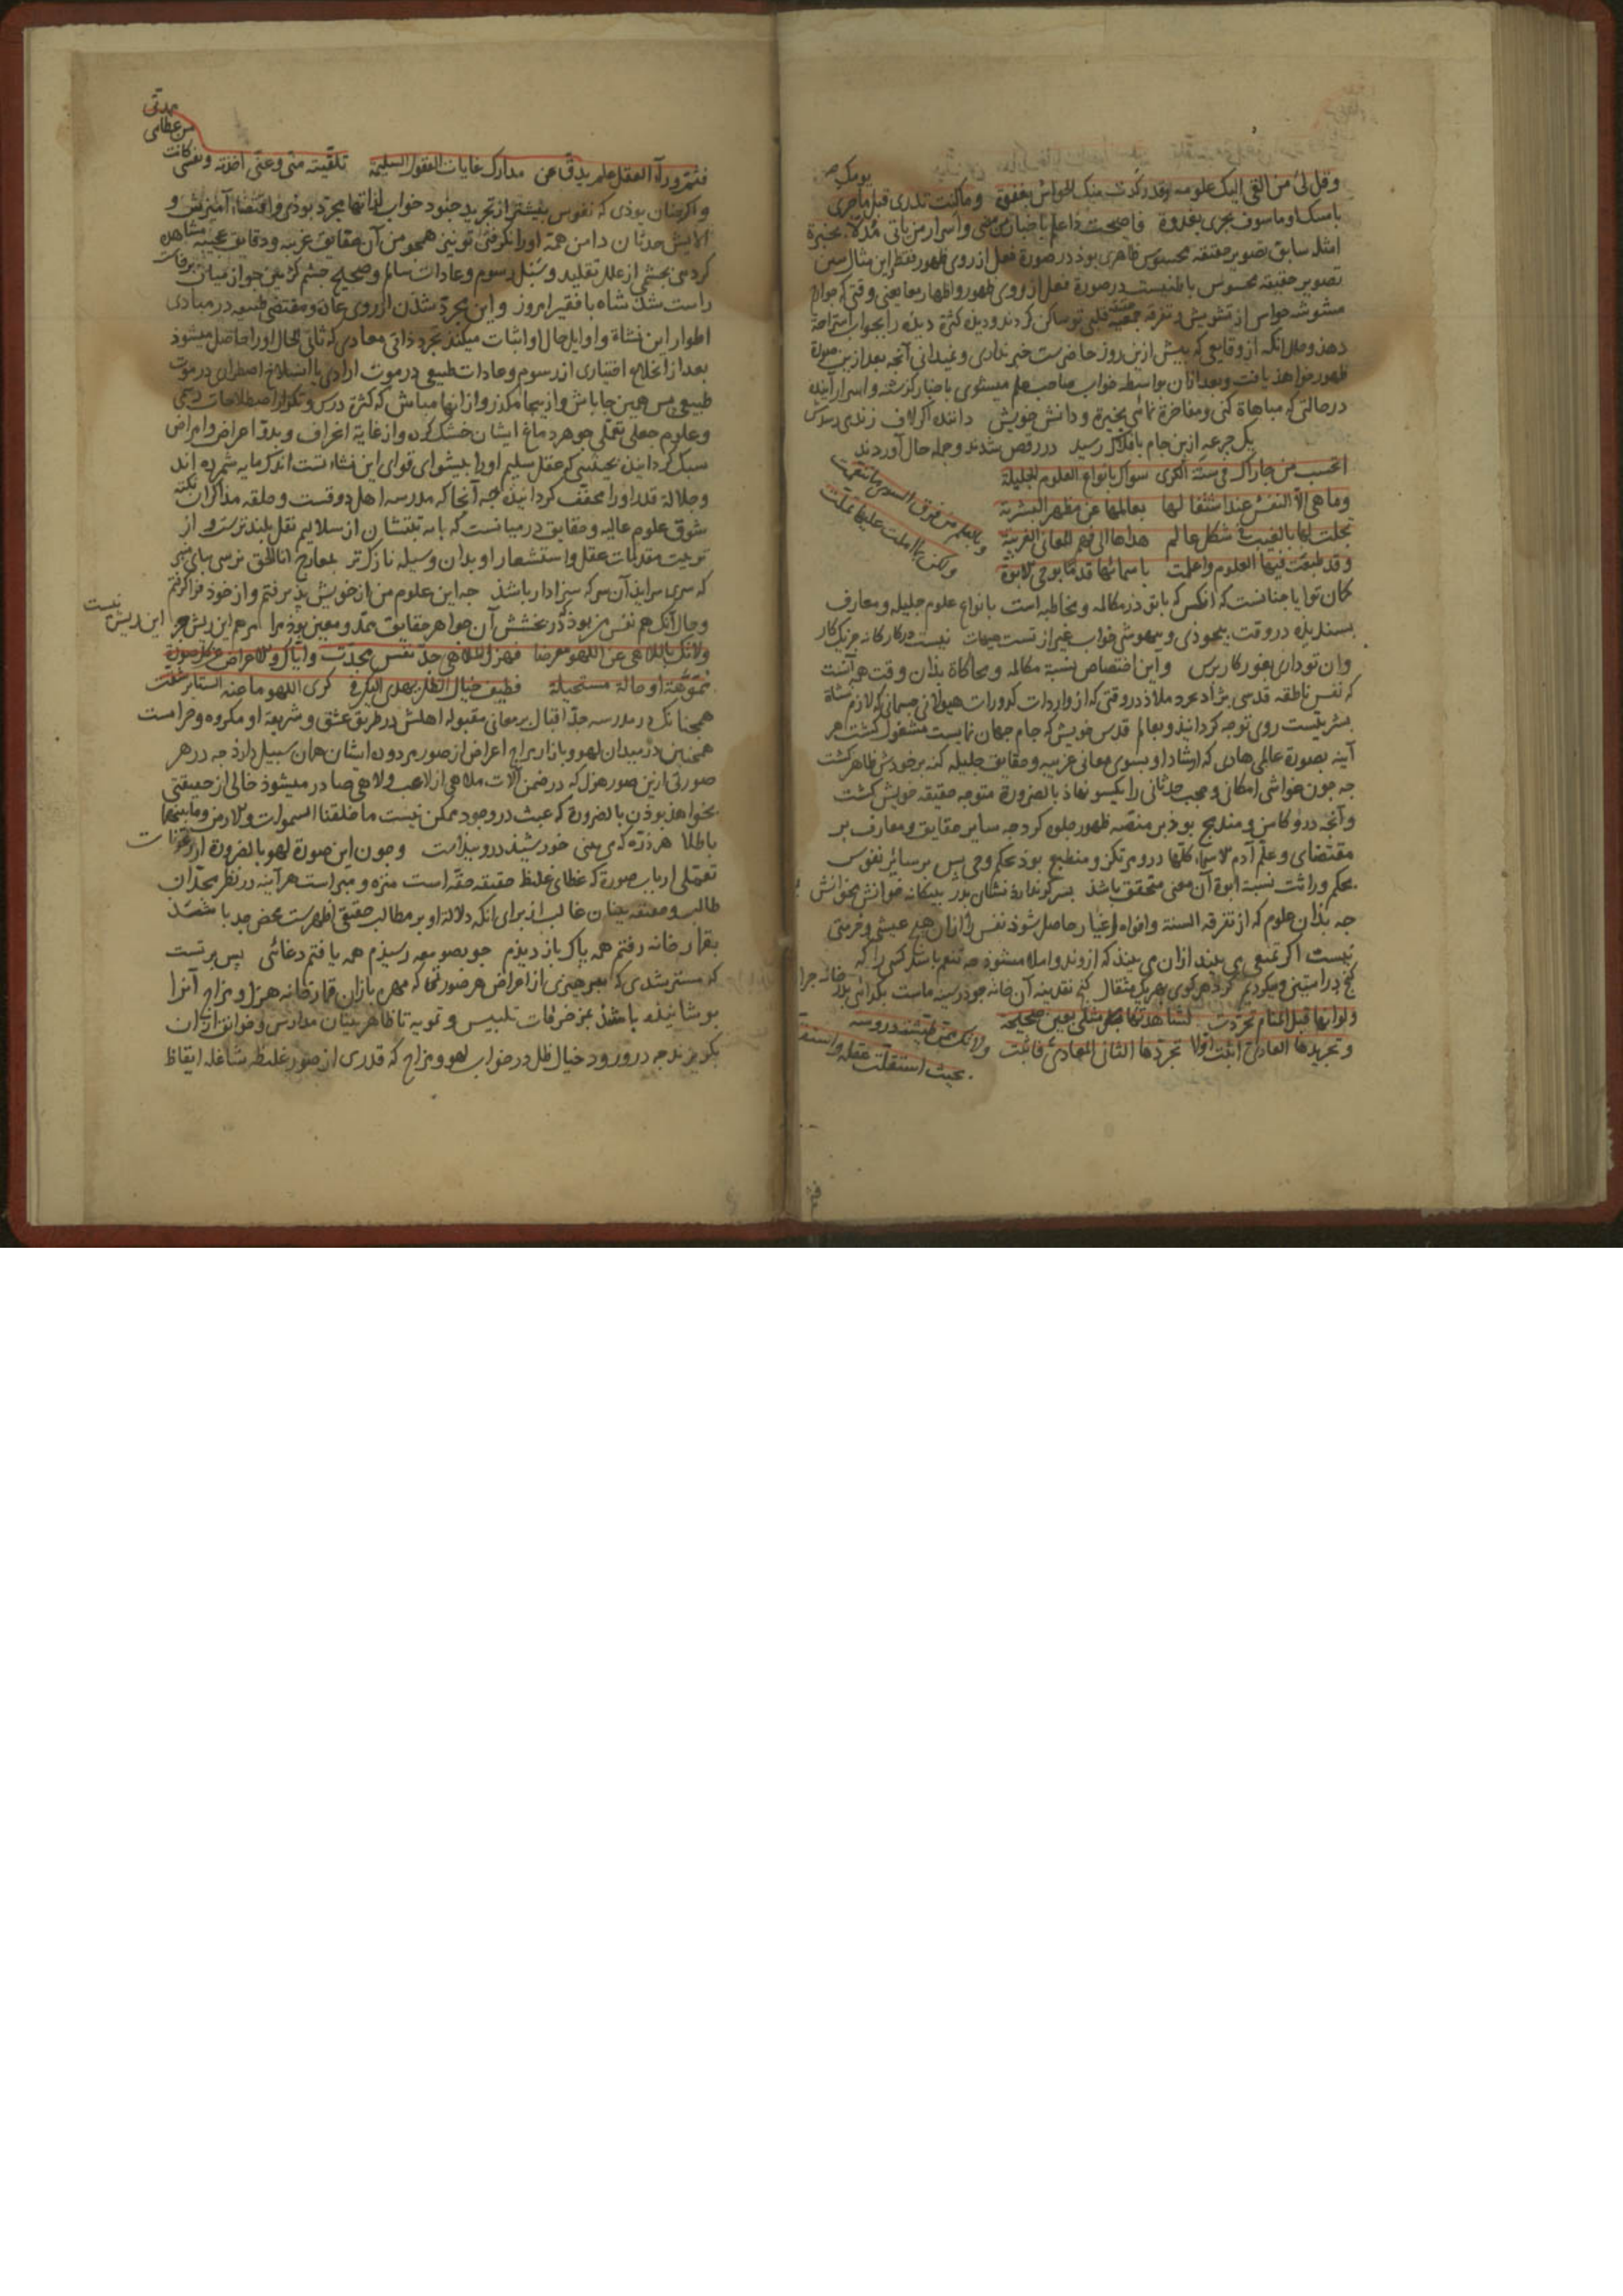 وقل لی من القی الیک علومه وقد رکدت منک الحواس بغفوة وما کنت تدری قبل یومک ما جری
بامسک او ما سوف یجری بغدوة فاصبحت ذا علم باخبار من مضی واسرار من یاتی مدلا بخبرة
امثله سابق تصویر حقیقة محسوس ظاهری بوذ در صورة فعل از روی ظهور فقط این مثال
تصویر حقیقة محسوس باطنیست در صورة فعل از روی ظهور واظهار معا یعنی وقتی که
مشوشه حواس از تشویش و تفرقه جمعیة قلبی تو ساکن کردند و دیده کثرة دیده را بخواب استراحة
دهذ و حال انکه از وقایعی که پیش ازین روز حاضرست خبر نداری و نمیدانی آنچه بعد ازین صورة
ظهور خواهذ یافت و بعد ازان بواسطه خواب صاحب علم میشوی باخبار کذشته و اسرار آینده
در حالتی که مباهاة کنی و مفاخرة نمائی بخبرة و دانش خویش داننده اکر لاف زندی
یک جرعه ازین جام بافلاک رسید در رقص شدند و جمله حال آوردند
اتحسب من جاراک فی سنة الکری سواک بانواع العلوم الجلیلة
وما هی الا النفس عند اشتغالها بعالمها عن مظهر البشریة
تجلت لها بالغیب فی شکل عالم هداها الی فهم المعانی الغریبة
وقد طبعت فیها العلوم واعلنت باسمائها قدما بوحی الابوة
وبالعلم من فوق السوی ما تنعمت
ولکن بما املت علیها تملت
کمان تو ایا چنانست که انکس که با تو در مکالمه و مخاطبه است بانواع علوم جلیله و معارف
بسندیده در وقت بیخوذی و بیهوشی خواب غیر از تست هیهات نیست در کار کانه جز یک کار
وان تو دان بغور کار برس واین اختصاص بنسبة مکالمه و محاکاة بذان وقت هم آنست
که نفس ناطقه قدسی نژاد مجرد ملاذ در وقتی که از واردات کدورات هیولانی جسمانی که لازم نشاة
بشریتست روی توجه کردانید و بعالم قدس خویش که جام جهان نمایست مشغول کشت هر
آینه بصورة عالمی هادی که ارشاد او بسوی معانی غریبه و حقایق جلیله کند بر خودش ظاهر کشت
چه چون غواشی امکان و حجب حدثانی را یکسو نهاذ بالضرورة متوجه حقیقه خویش کشت
وآنچه درو کامن و مندمج بوذ بر منصه ظهور جلوه کرد چه سایر حقایق و معارف بر
مقتضای وعلم آدم الاسماء کلها درو مرتکز و منطبع بوذ بحکم وحی پس بر سائر نفوس
بحکم وراثت نسبة ابوة آن معنی متحقق باشذ پسر کو ندارد نشان پدر بیکانه خوانش مخوانش
چه بذان علوم که از تفرقه السنة وافواه اغیار حاصل شوذ نفس را ازان هیچ عیشی و فرحتی
نیست اکر تمتعی می بیند ازان می بیند که ازو بدو املا میشوذ چه تنعم باشد کسی را که
کنج در آستین و میکردیم کرد هر کوی بهر یک مثقال کنج نقدینه آن خانه چو در سینه ماست بکدائی بدر خانه چرا
ولو انها قبل المنام تجردت لشاهدتها مثلی بعین صحیحة
وتجریدها العادی اثبت اولا تجردها الثانی المعادی فاثبت
ولاتک ممن طیشته دروسه
بحیث استقلت عقله واستفزت
فثم وراء العقل علم یدق عن مدارک غایات العقول السلیمة تلقیته منی وعنی اخذته ونفسی کانت
من عطائی
ممدتی
واکر چنان بوذی که نفوس پیشتر از تجرید جنود خواب لذاتها مجرد بوذی واقتضاء آمیزش و
آلایش حدثان دامن همة او را نکرفتی تو نیز همچو من آن حقایق غریبه و دقایق عجیبه مشاهده
کردی بچشمی از علل تقلید و سبل رسوم و عادات سالم و صحیح چشم کژ بین چو از میان برخاست
راست شد شاه با فقیر امروز واین مجرد شدن از روی عادة و مقتضی طبیعه در مبادی
اطوار این نشاة و اوایل حال او اثبات میکند تجرد ذاتی معادی که ثانی الحال او را حاصل میشوذ
بعد از انخلاع اختیاری از رسوم و عادات طبیعی در موت ارادی یا انسلاخ اضطراری در موت
طبیعی پس همین جا باش و از اینجا مکذر و از انها مباش که کثرة درس و تکرار اصطلاحات رسمی
و علوم جعلی تعملی جوهر دماغ ایشان خشک کرده و از غایة اغراف و بدو اعراض و امراض
سبک کردانیده بحیثیتی که عقل سلیم او را پیشوای قوای این نشاء تست اندک مایه شمرده اند
و جلالة قدر او را محفف کردانیده چه آنجا که مدرسه اهل ذوقست و حلقه مذاکران نکته
شوق علوم عالیه و حقایق در میانست که پایه تبتشان از سلالیم نقل بلندترست و از
تربیت مقدمات عقل و استشعار او بدان وسیله نازکتر بمعارج انا الحق نرسی بپای منبر
که سری سراید آن سر که سزا دار باشذ چه این علوم من از خویش پذیرفتم و از خوذ فرا کرفتم
و حال آنکه هم نفس من بوذ که در بخشش آن جواهر حقایق ممد و معین بوذ مرا مرهم این ریش جز این ریش نیست
ولا تک باللاهی عن اللهو معرضا فهزل الملاهی جد نفس مجدة وایاک والاعراض عن کل صورة
مموهة او حالة مستحیلة فطیف خیال الظل یهدی الیک فی کری اللهو ما عنه الستائر شقت
همچنانک در مدرسه جد اقبال بر معانی مقبوله اهلش در طریق عشق و شریعة او مکروه و حرامست
همچنین در میدان لهو و بازار مزاح اعراض از صور مردوده ایشان همان سبیل دارذ چه در هر
صورتی ازین صور هزل که در ضمن آلات ملاهی از لاعب و لاهی صادر میشوذ خالی از حقیقتی
نخواهذ بوذن بالضرورة که عبث در وجود ممکن نیست ما خلقنا السموات والارض وما بینهما
باطلا هر ذره که می بینی خورشید درو پیداست وچون این صورة لهو بالضرورة از رعونات
تعملی ارباب صورة که غطای غلیظ حقیقه حقه است منزه و مبراست هر آینه در نظر مجدان
طالب و حقیقه بینان غالب از برای انکه دلالة او بر مطالب حقیقی اظهرست محض جد باشذ
بقمار خانه رفتم همه پاک باز دیدم چو بصومعه رسیذم همه یافتم دغائی پس بر تست
که مسترشدی که بهر چیزی از اعراض هر صورتی که مهره بازان قمارخانه هزل و مزاح آنرا
پوشانیده باشند بزخرفات تلبیس و تمویه تا ظاهر بینان مدارس و خوانق ازان
بکریزند چه در ورود خیال ظل در خواب لهو و مزاح که قدری از صور غلیظه شاغله ایقاظ